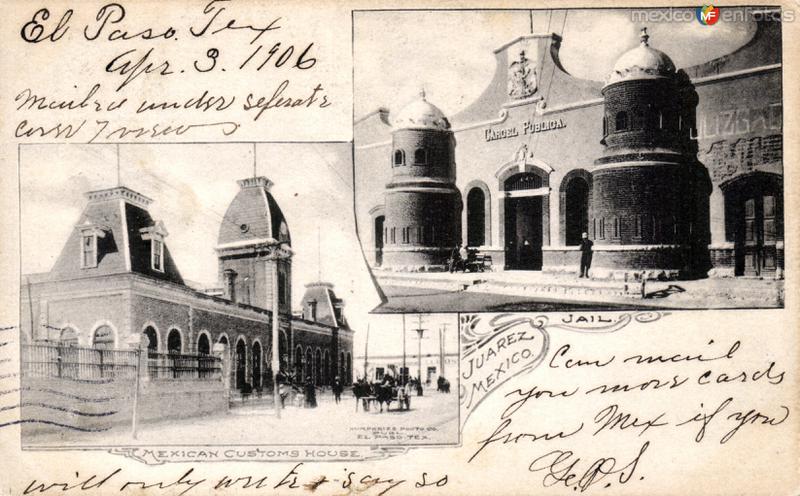 mexicoenfotos
El Paso. Tex
Apr. 3. 1906
Mailed under seperate
cover 7 views
CARCEL PUBLICA.
JAIL.
JUAREZ
MEXICO.
HUMPHRIES PHOTO CO.
PUBL
EL PASO. TEX.
MEXICAN CUSTOMS HOUSE.
Can mail
you more cards
from Mex if you
will only write & say so
G.P.S.